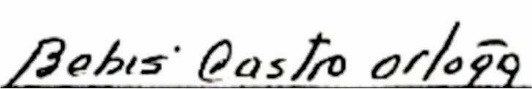 Bebis Castro orlogg